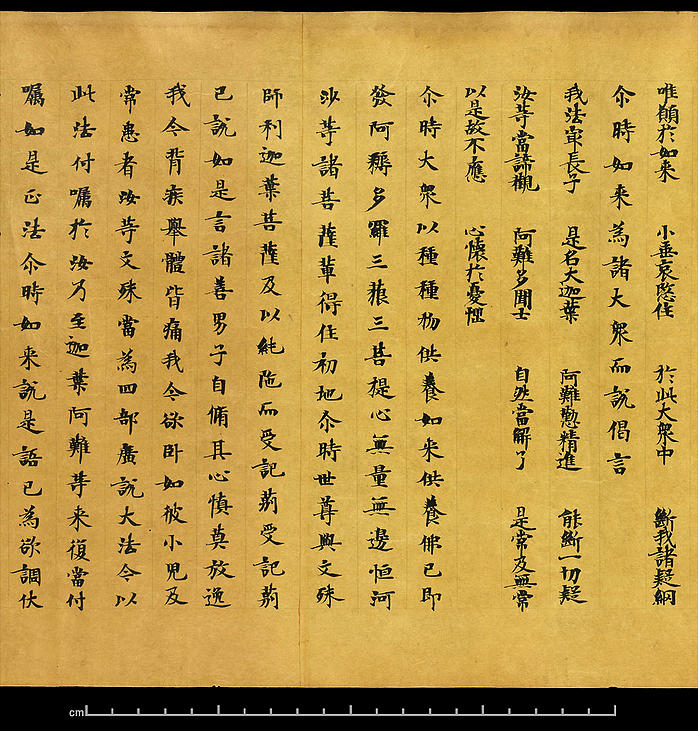 唯願於如来　小垂哀愍住　於此大衆中　斷我諸疑網
尒時如来為諸大衆而說偈言
我法寂長子　是名大迦葉　阿難懃精進　能斷一切疑
汝䓁當諦觀　阿難多聞士　自然當解了　是常及無常
以是故不應　心懷於憂悩
尒時大衆以種種物供養如来供養佛已即
發阿耨多羅三藐三菩提心無量無邊恒河
沙䓁諸菩薩輩得住初地尒時世尊與文殊
師利迦葉菩薩及以純陁而受記莂受記莂
已說如是言諸善男子自脩其心慎莫放逸
我今背疾舉體皆痛我今欲卧如彼小兒及
常患者汝䓁文殊當為四部廣說大法今以
此法付囑於汝乃至迦葉阿難䓁来復當付
囑如是正法尒時如来說是語已為欲調伏
cm